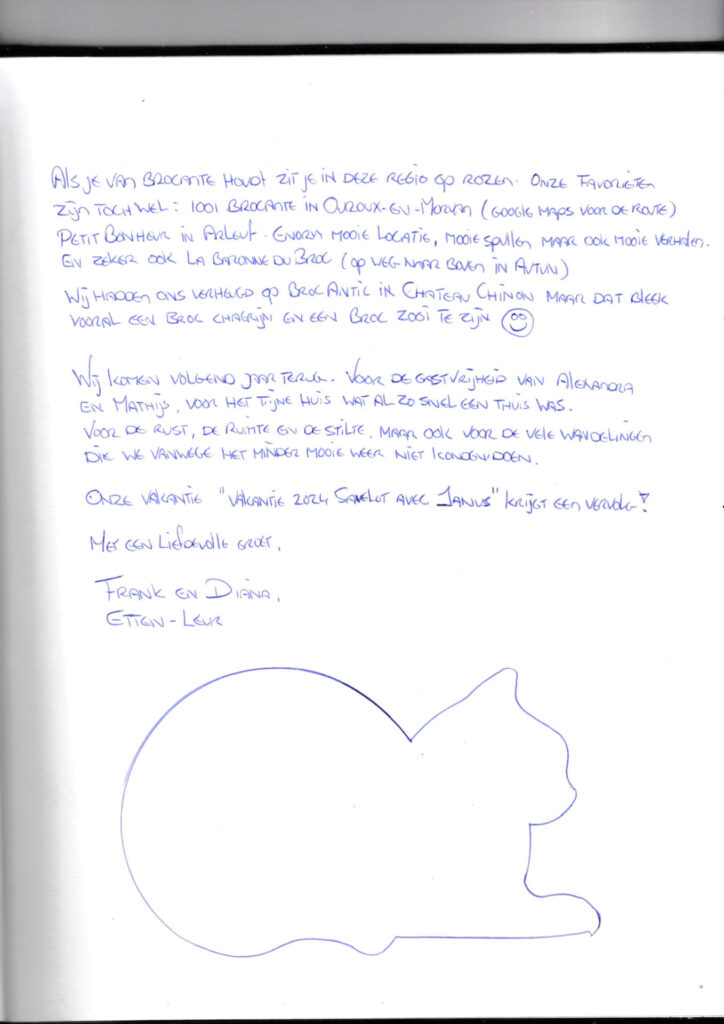 Als je van brocante houdt zit je in deze regio op rozen. Onze favorieten
zijn toch wel: 1001 Brocante in Ouroux-en-Morvan (Google Maps voor de route)
Petit Bonheur in Arleuf. Enorm mooie locatie, mooie spullen maar ook mooie verhalen.
En zeker ook La Baronne du Broc (op weg naar boven in Autun)
Wij hadden ons verheugd op Broc Antic in Chateau Chinon maar dat bleek
vooral een broc chagrijn en een broc zooi te zijn
Wij komen volgend jaar terug. Voor de gastvrijheid van Alexandra
en Mathijs, voor het fijne huis wat al zo snel een thuis was.
Voor de rust, de ruimte en de stilte, maar ook voor de vele wandelingen
die we vanwege het minder mooie weer niet konden doen.
Onze vakantie "Vakantie 2024 Savelot avec Janus" krijgt een vervolg!
Met een liefdevolle groet,
Frank en Diana,
Etten-Leur